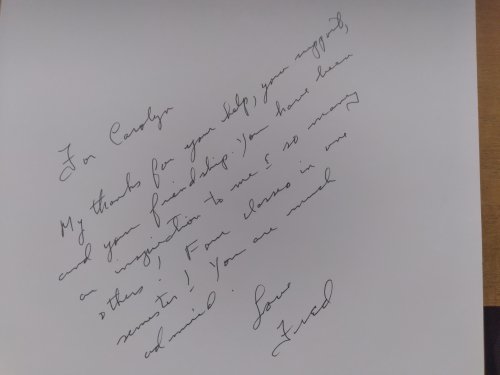 For Carolyn
My thanks for your help, your support,
and your friendship. You have been
an inspiration to me & so many
others! Four classes in one
semester! You are much
admired.
Love
Fred